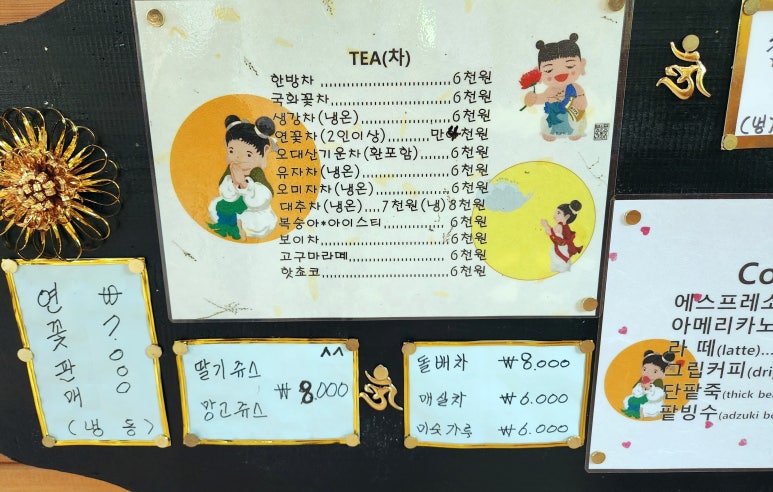 TEA(차)
한방차..............................6천원
국화꽃차............................6천원
생강차(냉온)......................6천원
연꽃차(2인이상).........만4천원
오대산기운차(환포함)......6천원
유자차(냉온)......................6천원
오미자차(냉온)..................6천원
대추차(냉온)....7천원(냉)8천원
복숭아*아이스티...............6천원
보이차..............................6천원
고구마라떼........................6천원
핫쵸코..............................6천원
연꽃판매
₩7.000
(냉동)
^^
딸기쥬스
망고쥬스
₩8.000
돌배차 ₩8.000
매실차 ₩6.000
미숫가루 ₩6.000
Co
에스프레소
아메리카노
라 떼(latte)...
드립커피(dri
단팥죽(thick bea
팥빙수(adzuki be
(냉